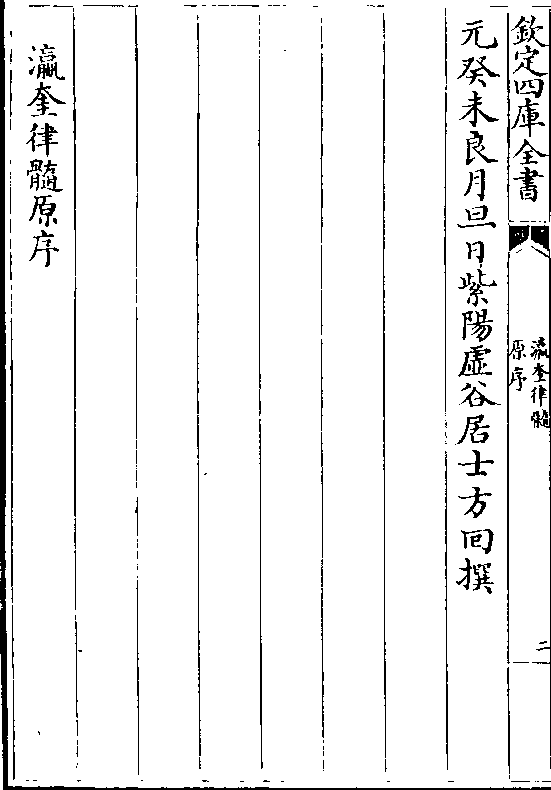 欽定四庫全書
瀛奎律髓
原序
二
元癸未良月旦日紫陽虛谷居士方回撰
瀛奎律髓原序